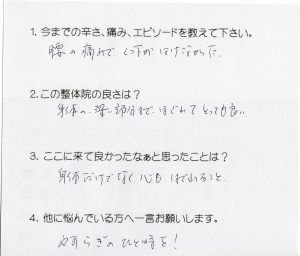 1. 今までの辛さ、痛み、エピソードを教えて下さい。
腰の痛みで、くつ下がはけなかった。
2.この整体院の良さは？
身体の、深い部分まで、ほぐれて、とっても良い
3. ここに来て良かったなぁと思ったことは？
身体だけでなく、心も、ほぐれること
4. 他に悩んでいる方へ一言お願いします。
やすらぎのひと時を！